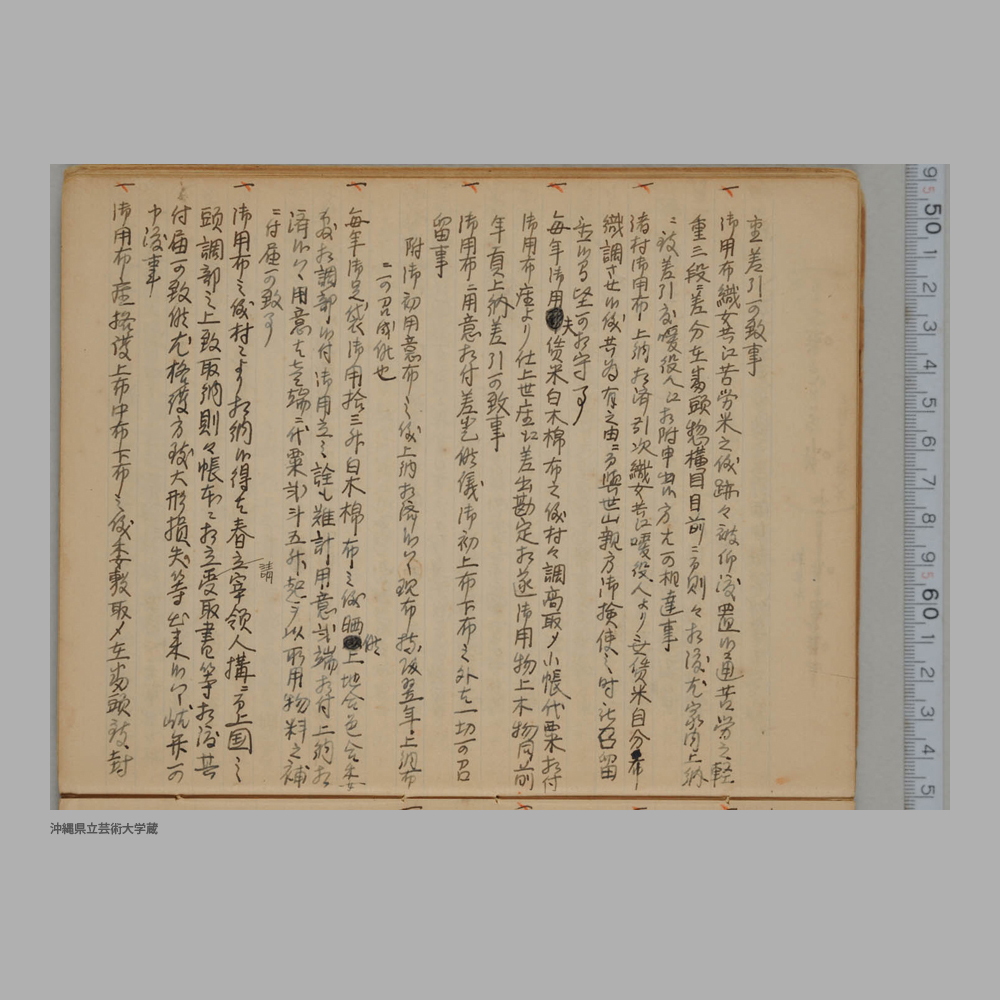 重差引可致事
一御用布織女共江苦労米之儀跡々被仰渡置候通苦労之軽
重三段ニ差分在番頭惣横目目前ニ而則々相渡尤家内上納
ニ被差引間敷役人江相附申出候方尤可相達事
一諸村御用布上納相済引次織女共江噯役人より無賃米自分布
織調させ候儀共為有之由ニ而與世山親方御検使之時被召留
置候間堅可相守事
一毎年御用夫賃米白木棉布之儀村々調高取〆小帳代粟相付
御用布座より仕上世座江差出勘定相遂御用物上木物同前
年貢上納差引可致事
一御用布ニ用意相付差出候儀御初上布下布之外者一切可召
留事
附御初用意布之儀上納相済候ハヽ現布持返翌年上納布
ニ可召成候也
一毎年御足袋御用拾三升白木棉布之儀晒上地合色合委
敷相調部候付御用立之詮も難計用意弐端相付上納相
済候ハヽ用意者壱端ニ代粟弐斗五升起ニ而以所用物料之補
ニ付届可致事
一御用布之儀村々より相納候得者春立宰領人構ニ而上国之
請
頭調部之上致取納則々帳本ニ相立受取書等相渡其
付届可致候尤格護方致大形損失等出来候ハヽ屹与可
申渡事
一御用布座格護上布中布下布之儀委敷取〆在番頭致封